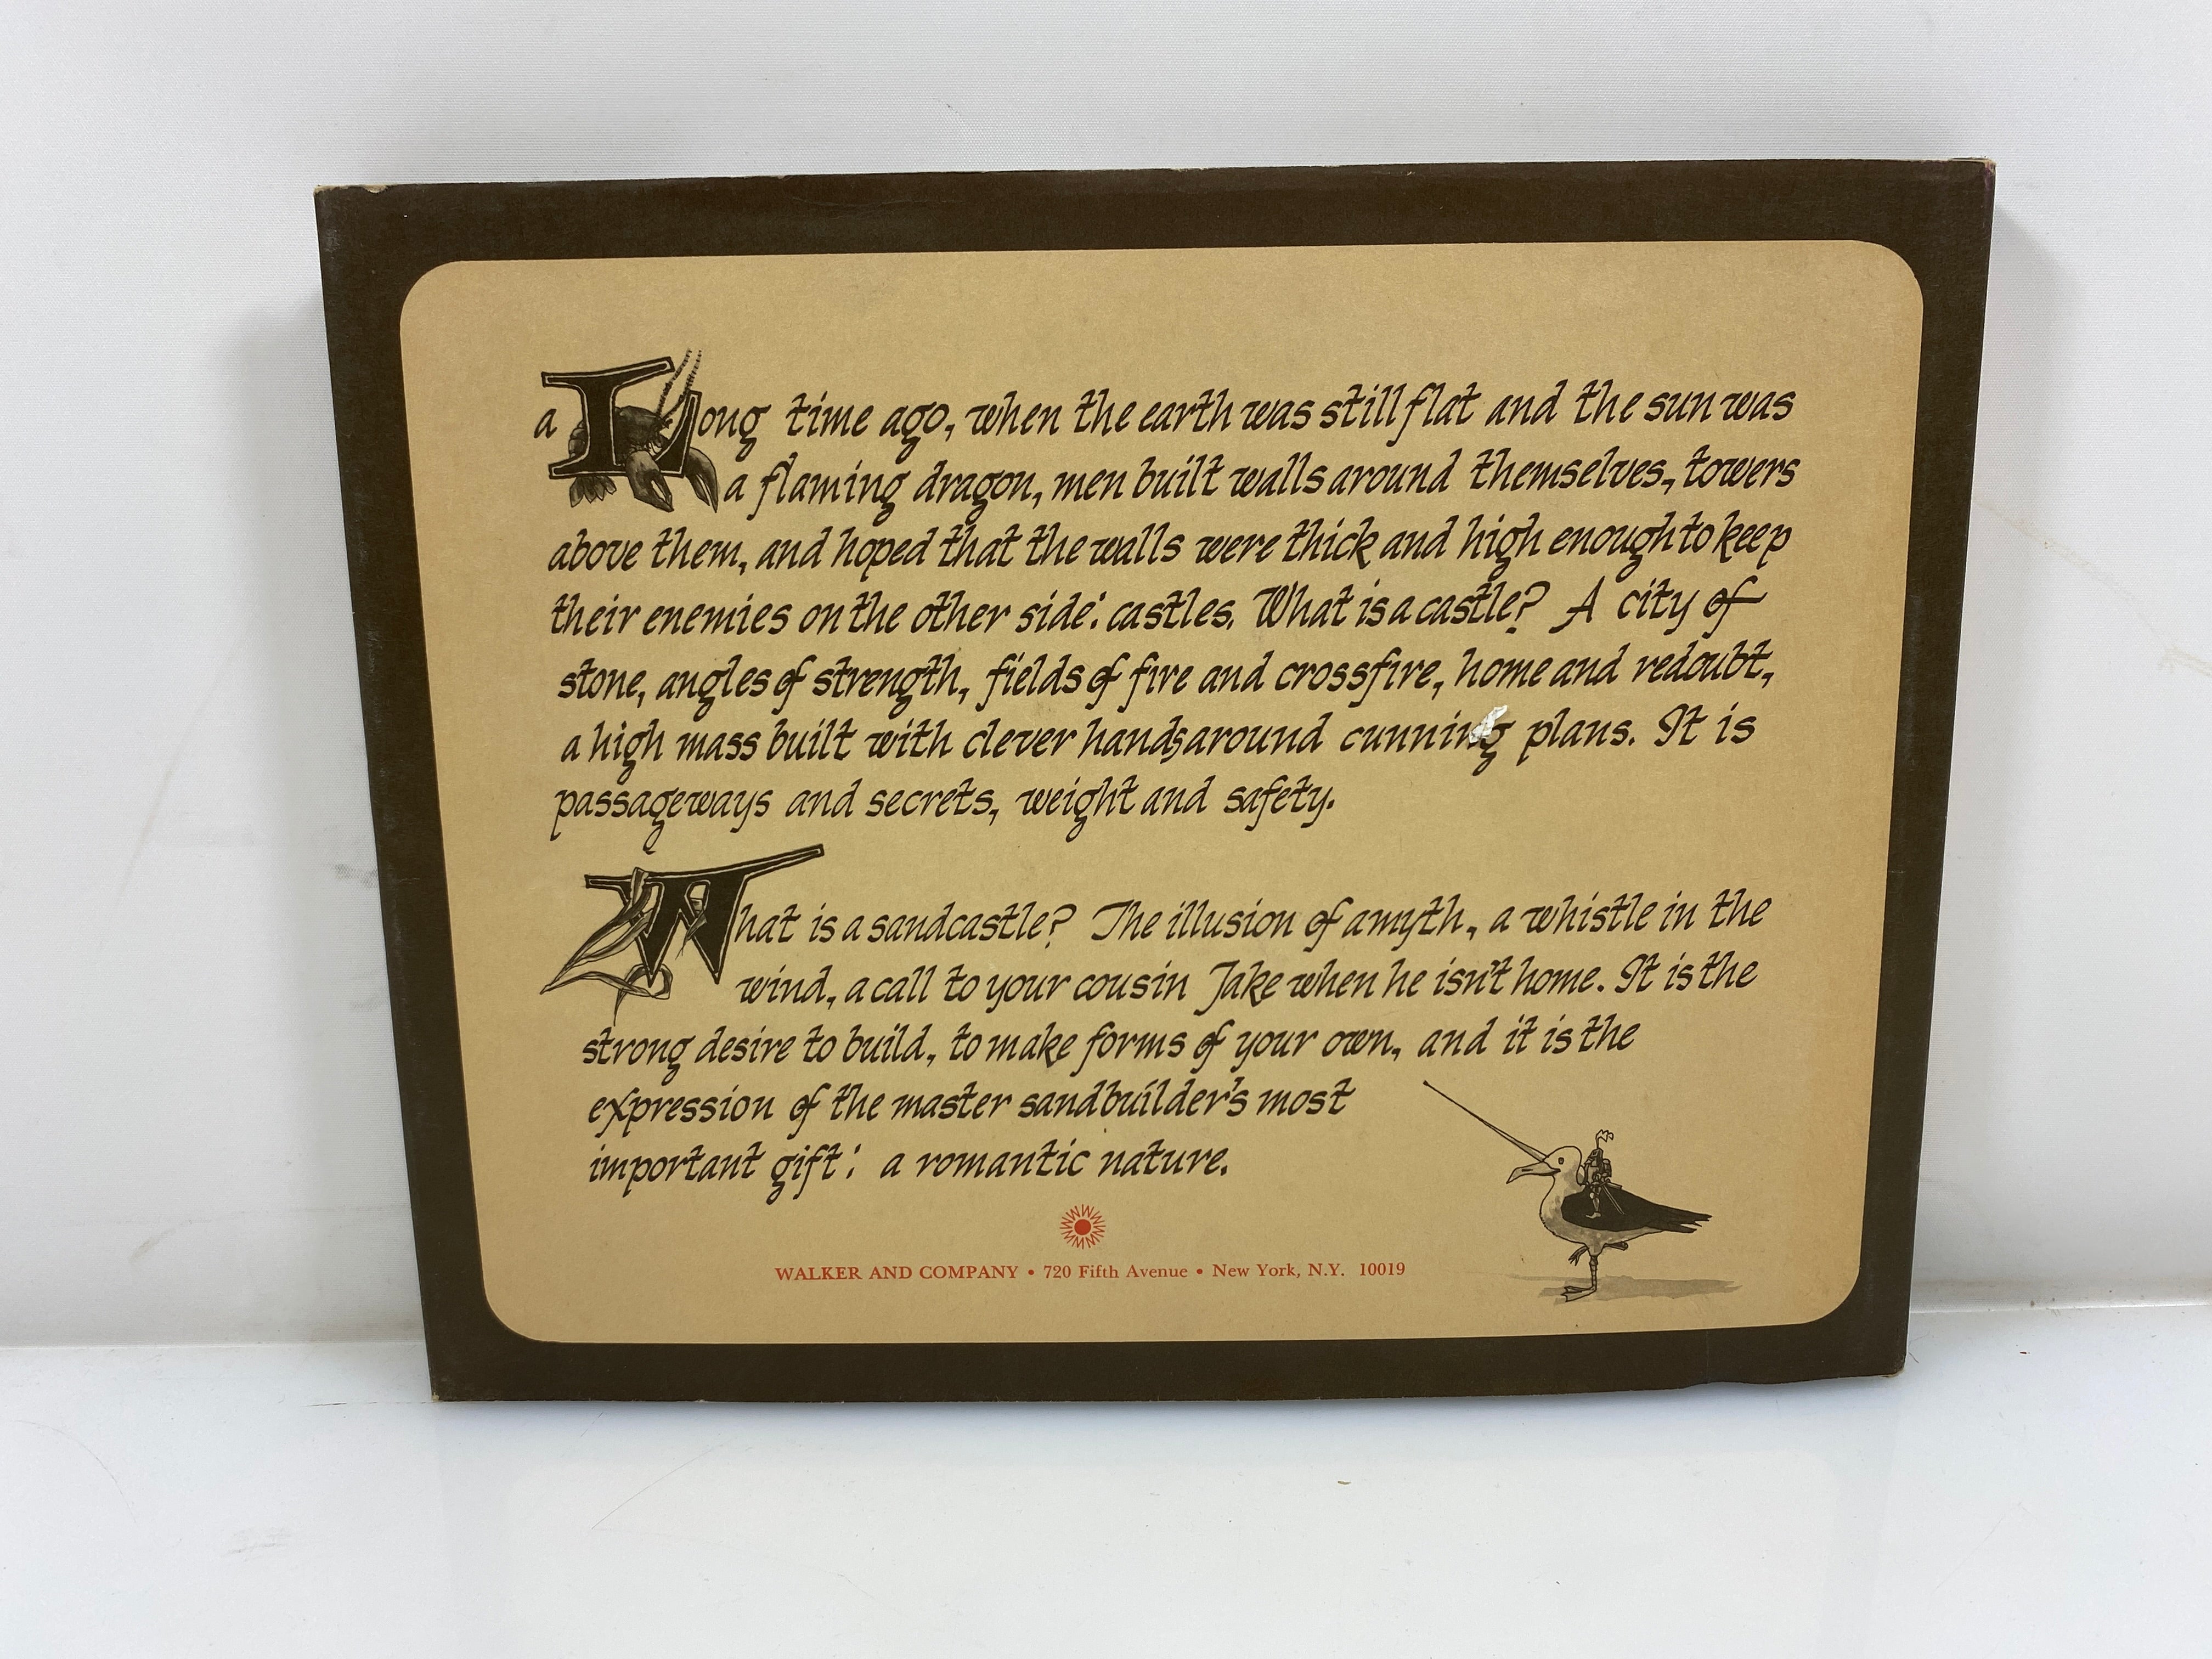 a Long time ago, when the earth was still flat and the sun was
a flaming dragon, men built walls around themselves, towers
above them, and hoped that the walls were thick and high enough to keep
their enemies on the other side: castles. What is a castle? A city of
stone, angles of strength, fields of fire and crossfire, home and redoubt,
a high mass built with clever hands around cunning plans. It is
passageways and secrets, weight and safety.
What is a sandcastle? The illusion of a myth, a whistle in the
wind, a call to your cousin Jake when he isn't home. It is the
strong desire to build, to make forms of your own, and it is the
expression of the master sandbuilder's most
important gift: a romantic nature.
WALKER AND COMPANY • 720 Fifth Avenue • New York, N.Y. 10019